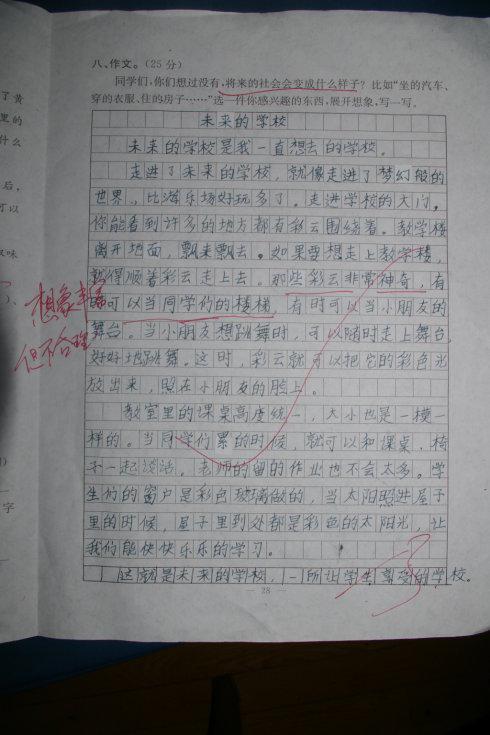 八、作文。(25分)
同学们,你们想过没有,将来的社会会变成什么样子?比如“坐的汽车、
穿的衣服、住的房子……”选一件你感兴趣的东西,展开想象,写一写。
未来的学校
未来的学校是我一直想去的学校。
走进了未来的学校,就像走进了梦幻般的
世界,比游乐场好玩多了。走进学校的大门,
你能看到许多的地方都有彩云围绕着。教学楼
离开地面,飘来飘去。如果要想走上教学楼,
就得顺着彩云走上去。那些彩云非常神奇,有
时可以当同学们的楼梯,有时可以当小朋友的
舞台。当小朋友想跳舞时,可以随时走上舞台,
好好地跳舞。这时,彩云就可以把它的彩色光
放出来,照在小朋友的脸上。
教室里的课桌高度统一,大小也是一模一
样的。当同学们累的时候,就可以和课桌、椅
子一起谈话。老师的留的作业也不会太多。学
生们的窗户是彩色玻璃做的,当太阳照进屋子
里的时候,屋子里到处都是彩色的太阳光,让
我们能快快乐乐的学习。
这就是未来的学校,一所让学生享受的学校。
— 28 —
想象丰富
但不合理
了黄
里的
什么
后,
可以
味
)、
字